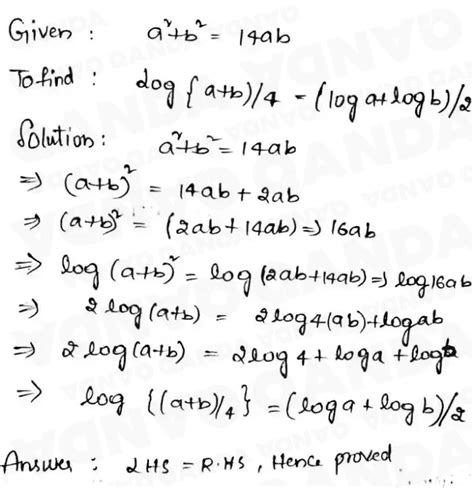 Given : a²+b² = 14ab
To find : log {a+b)/4 = (log a+log b)/2
Solution : a²+b² = 14ab
⇒ (a+b)² = 14ab + 2ab
⇒ (a+b)² = (2ab+14ab) ⇒ 16ab
⇒ log (a+b)² = log (2ab+14ab) ⇒ log 16ab
⇒ 2 log (a+b) = 2log4(ab)+logab
⇒ 2 log (a+b) = 2log 4 + log a + log b
⇒ log {(a+b)/4} = (log a + log b)/2
Answer : LHS = R.HS, Hence proved